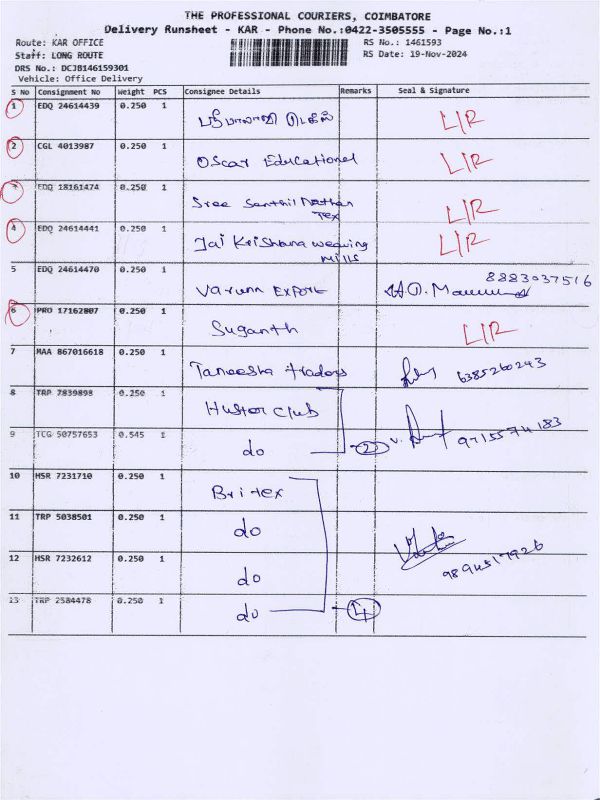 THE PROFESSIONAL COURIERS, COIMBATORE
Delivery Runsheet - KAR - Phone No.:0422-3505555 - Page No.:1
Route: KAR OFFICE RS No.: 1461593
Staff: LONG ROUTE RS Date: 19-Nov-2024
DRS No.: DCJB146159301
Vehicle: Office Delivery
S No Consignment No Weight PCS Consignee Details Remarks Seal & Signature
1 EDQ 24614439 0.250 1 L/R
2 CGL 4013987 0.250 1 Oscar Educational L/R
3 EDQ 18161474 0.250 1 Sree Santhil Nathan
Tex L/R
4 EDQ 24614441 0.250 1 Jai Krishana weaving L/R
mills
5 EDQ 24614470 0.250 1 Varunn Export 8883037516
6 PRO 17162807 0.250 1 Suganth L/R
7 MAA 867016618 0.250 1 Taneesha traders 6385260243
8 TRP 7839898 0.250 1 Hustor club
9 TCG 50757653 0.545 1 do 2 9715574183
10 HSR 7231710 0.250 1 Britex
11 TRP 5038501 0.250 1 do
12 HSR 7232612 0.250 1 do 9894517926
13 TRP 2584478 0.250 1 do 4